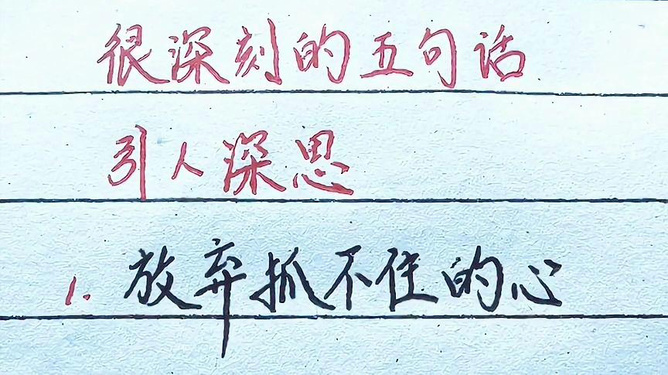 很深刻的五句话
引人深思
1. 放弃抓不住的心